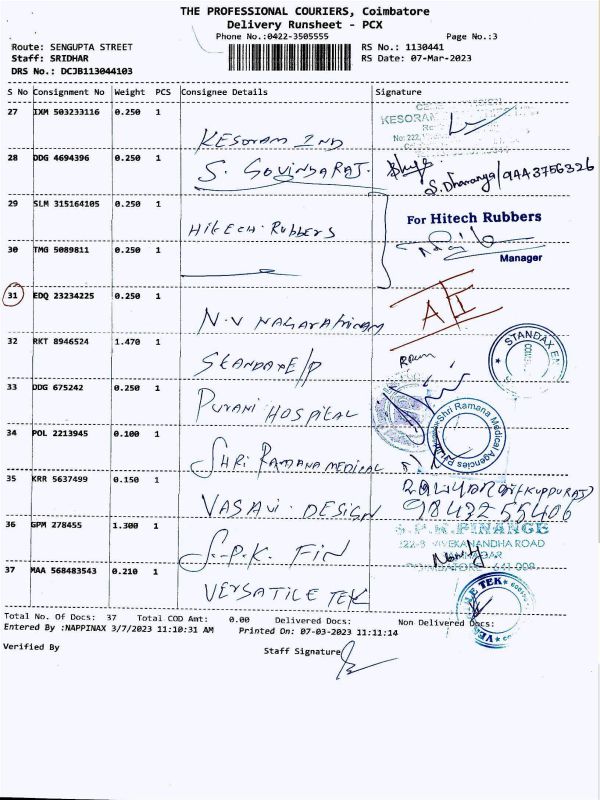 THE PROFESSIONAL COURIERS, Coimbatore
Delivery Runsheet - PCX
Phone No.:0422-3505555
Page No.:3
Route: SENGUPTA STREET
RS No.: 1130441
Staff: SRIDHAR
RS Date: 07-Mar-2023
DRS No.: DCJB113044103
S No Consignment No Weight PCS Consignee Details Signature
27 IXM 503233116 0.250 1
KESORAM IND
KESORAM
28 DDG 4694396 0.250 1
S. GOVINDARAJ.
S. Dharanya/9443756326
29 SLM 315164105 0.250 1
HITECH RUBBERS
For Hitech Rubbers
30 TMG 5089811 0.250 1
Manager
31 EDQ 23234225 0.250 1
N.V NAGARATHINAM
32 RKT 8946524 1.470 1
STANDAX E/P
STANDAX EN
33 DDG 675242 0.250 1
PURANI HOSPITAL
34 POL 2213945 0.100 1
SHRI RAMANA MEDICAL
Shri Ramana Medical Agencies
35 KRR 5637499 0.150 1
VASAVI DESIGN
(KUPPURAJ)
9843255406
36 GPM 278455 1.300 1
S.P.K. FIN
S.P.K. FINANCE
122-B VIVEKANANDHA ROAD
COIMBATORE 641 009
37 MAA 568483543 0.210 1
VERSATILE TEK
Total No. Of Docs: 37 Total COD Amt: 0.00 Delivered Docs: Non Delivered Docs:
Entered By :NAPPINAX 3/7/2023 11:10:31 AM Printed On: 07-03-2023 11:11:14
Verified By
Staff Signature